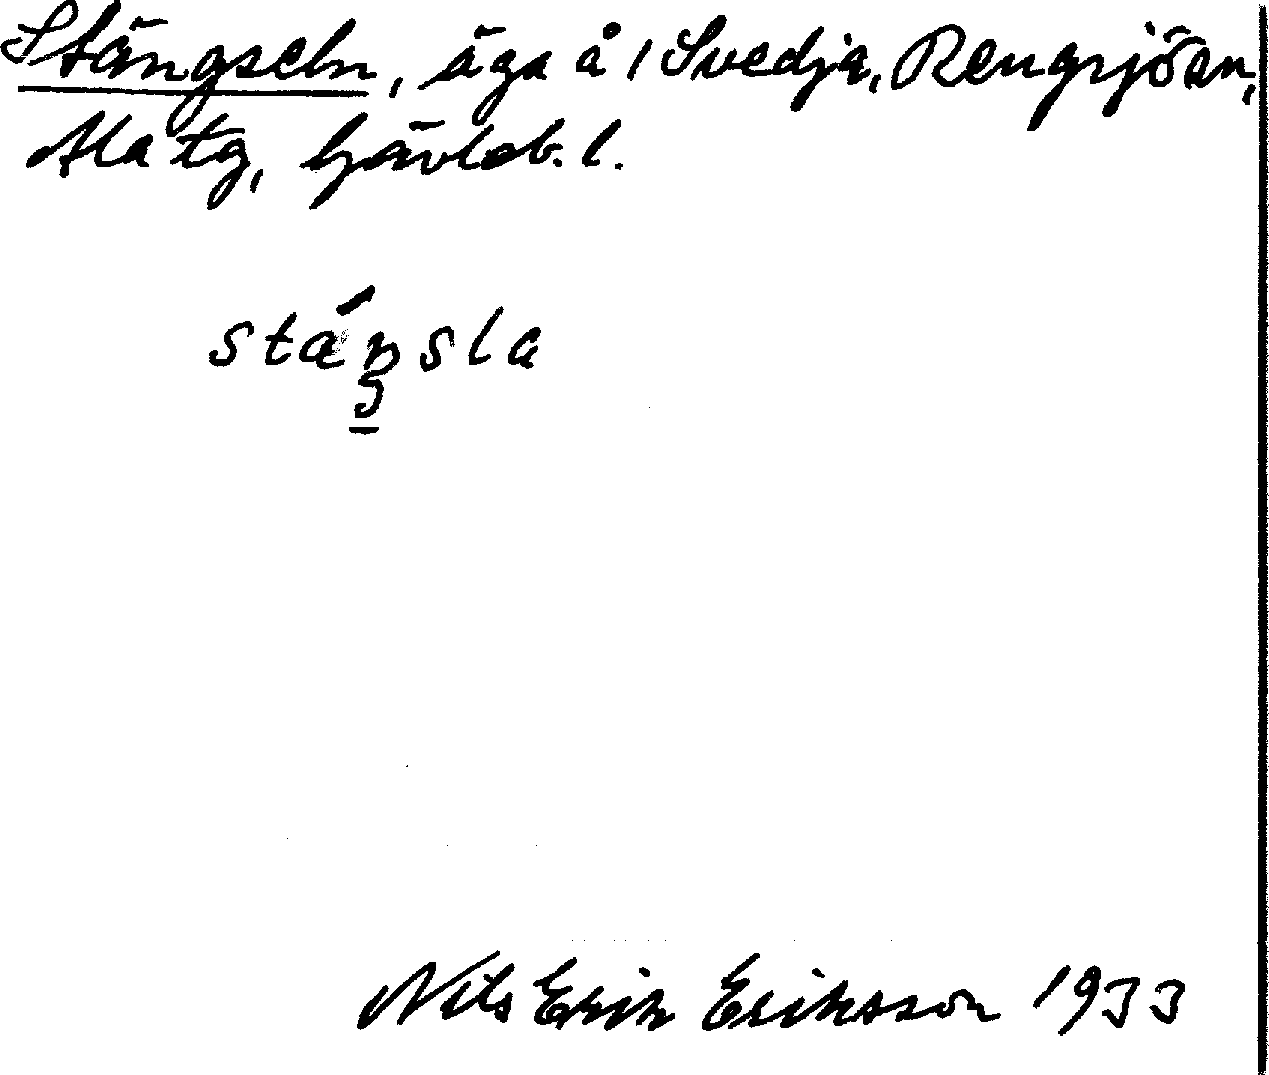 Stängseln, äga å 1 Svedja, Rengsjöan,
Ala tg, Gävleb. l.
stáŋsla
Nils Erik Eriksson 1933